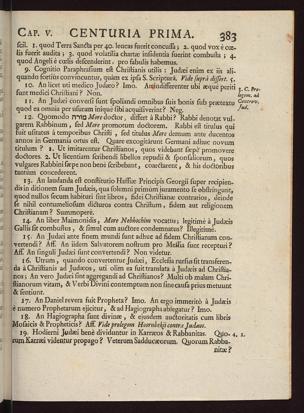 CAP. V. CENTURIA PRIMA. 383
scil. 1. quod Terra Sancta per 40. leucas fuerit concussa; 2. quod vox è cœ-
lis fuerit audita; 3. quod volatilia chartæ insidentia fuerint combusta; 4.
quod Angeli è cœlis descenderint. pro fabulis habemus.
9. Cognitio Paraphrasium est Christianis utilis: Judæi enim ex iis ali-
quando fortius convincuntur, quàm ex ipsâ S. Scripturâ. Vide suprà dissert. 5.
10. An licet uti medico Judæo? Imo. An indifferenter ubi æquè periti
sunt medici Christiani? Non.
11. An Judæi conversi sunt spoliandi omnibus suis bonis sub prætextu
quod ea omnia per usuram iniquè sibi acquisiverint? Neg.
12. Quomodo מורה More doctor, differt à Rabbi? Rabbi denotat vul-
garem Rabbinum, sed More promotum doctorem. Rabbi est titulus qui
fuit usitatus à temporibus Christi, sed titulus More demum ante ducentos
annos in Germania ortus est. Quare excogitârunt Germani adhuc novum
titulum? 1. Ut imitarentur Christianos, quos videbant sæpè promovere
doctores. 2. Ut licentiam scribendi libellos repudii & sponsaliorum, quos
vulgares Rabbini sæpe non bene scribebant, coërcerent, & his doctoribus
tantùm concederent.
13. An laudanda est constitutio Hassiæ Principis Georgii super recipien-
dis in ditionem suam Judæis, qua solenni primùm juramento se obstringant,
quod nullos secum habituri sint libros, fidei Christianæ contrarios, deinde
se nihil contumeliosum dicturos contra Christum, fidem aut religionem
Christianam? Summoperè.
14. An liber Maimonidis, More Nebhochim vocatus; legitimè à Judæis
Gallis sit combustus, & simul cum auctore condemnatus? Illegitimè.
15. An Judæi ante finem mundi sunt adhuc ad fidem Christianam con-
vertendi? Aff. An iidem Salvatorem nostrum pro Messia sunt recepturi?
Aff. An singuli Judæi sunt convertendi? Non videtur.
16. Utrum, quando convertentur Judæi, Ecclesia rursus sit transferen-
da à Christianis ad Judæos, uti olim ea fuit translata à Judæis ad Christia-
nos; An vero Judæi sint aggregandi ad Christianos? Multi ob malam Chri-
stianorum vitam, & Verbi Divini contemptum non sine causa prius metuunt
& sentiunt.
17. An Daniel revera fuit Propheta? Imo. An ergo immeritò à Judæis
è numero Prophetarum ejicitur, & ad Hagiographos ablegatur? Imo.
18. An Hagiographa sunt divinæ, & ejusdem auctoritatis cum libris
Mosaicis & Propheticis? Aff. Vide prolegom Hoornbekij contra Judæos.
19. Hodierni Judæi benè dividuntur in Karræos & Rabbanitas. Quo-
rum Karræi videntur propago? Veterum Sadducæorum. Quorum Rabba-
nitæ?
3. C. Pro-
legom. ad
Controv.
Jud.
4. 2.